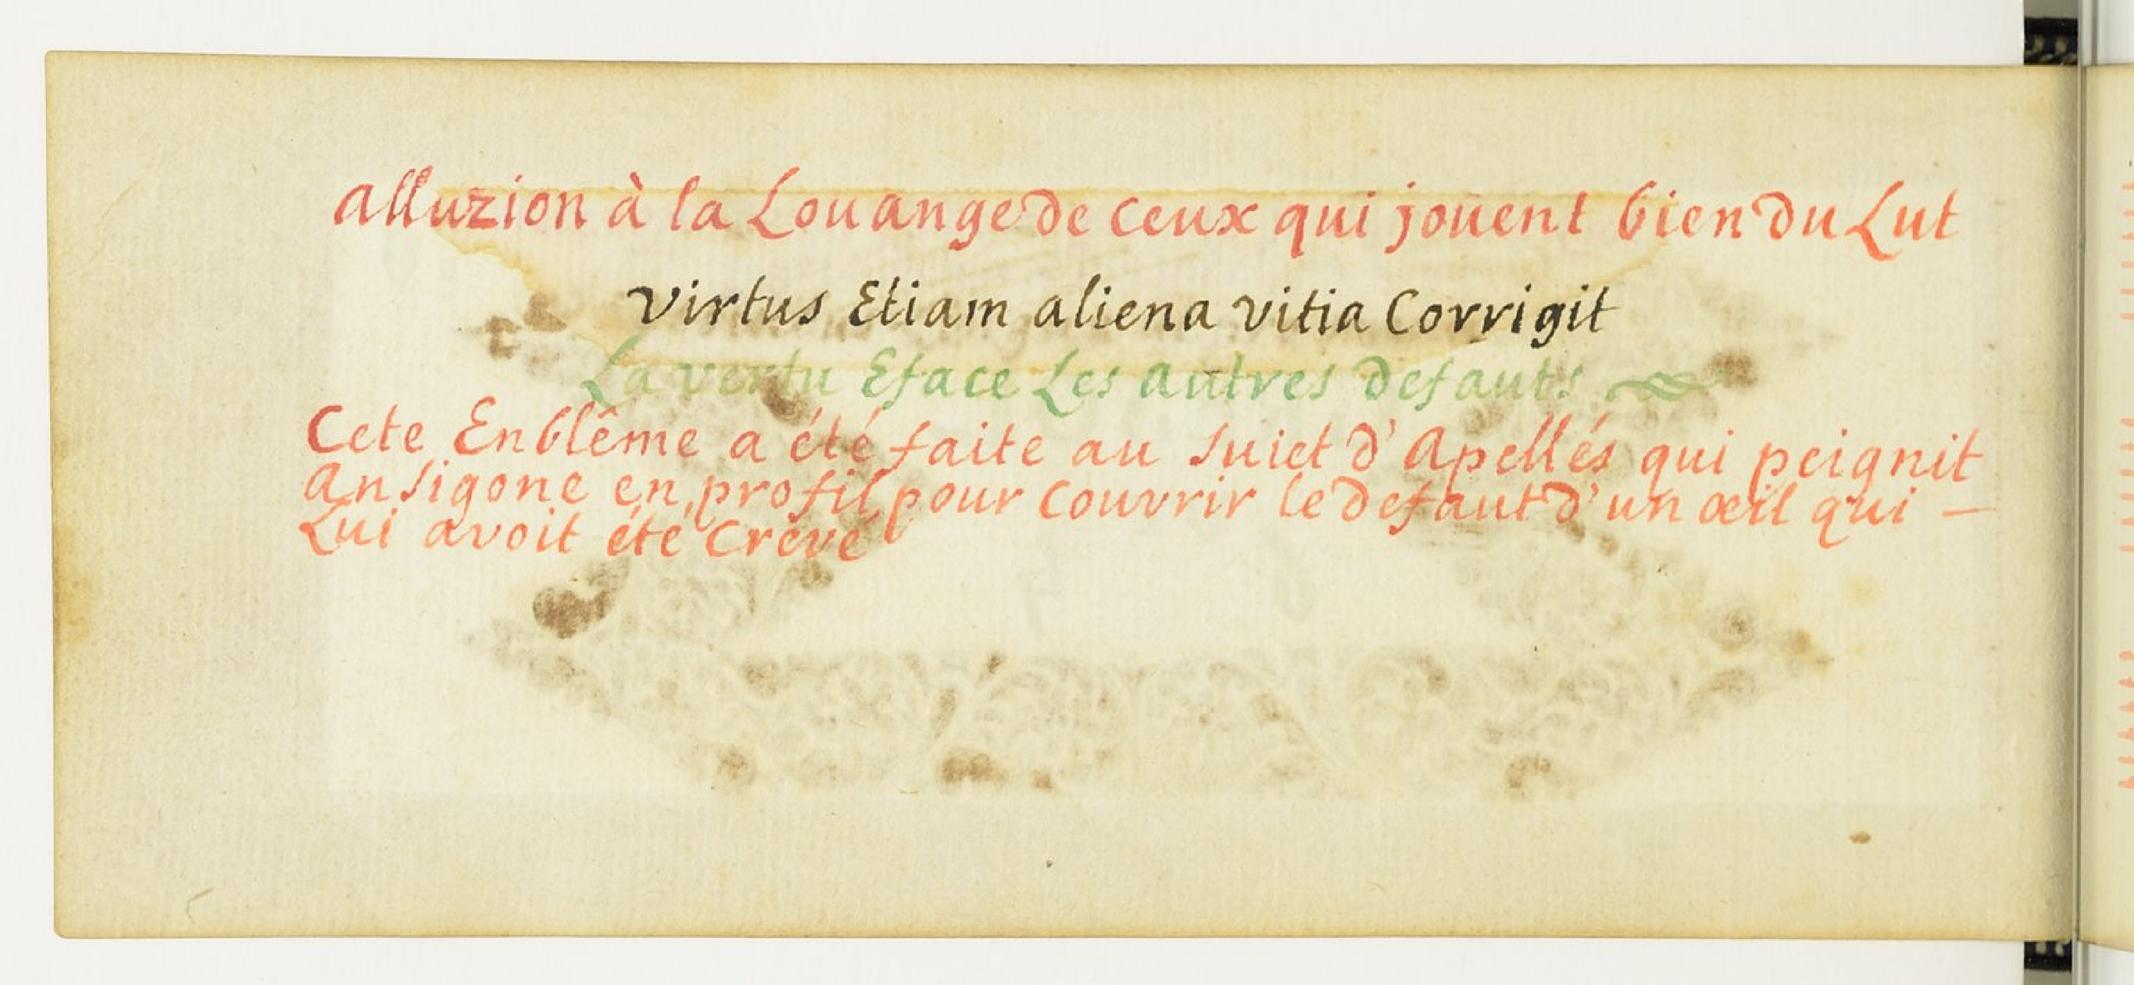 alluzion à la Louange de ceux qui joüent bien du Lut
Virtus Etiam aliena vitia Corrigit
La vertu Eface Les autres defauts
Cete Enblême a été faite au sujet d'Apellés qui peignit
Ansigone en profil pour couvrir le defaut d'un œil qui —
Lui avoit été Crevé